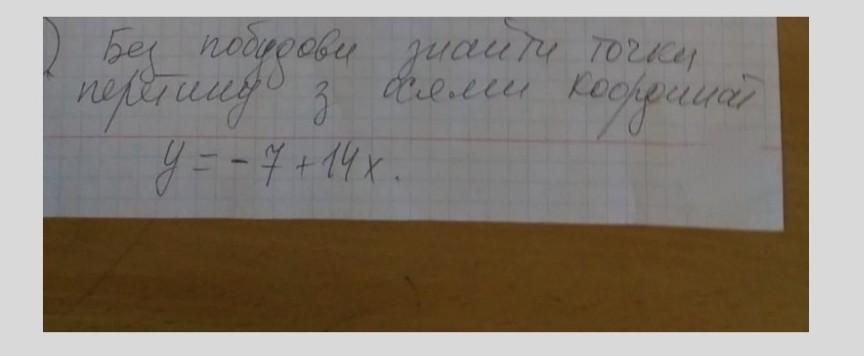 ) Без побудови знайти точки
перетину з осями координат
y = - 7 + 14x.